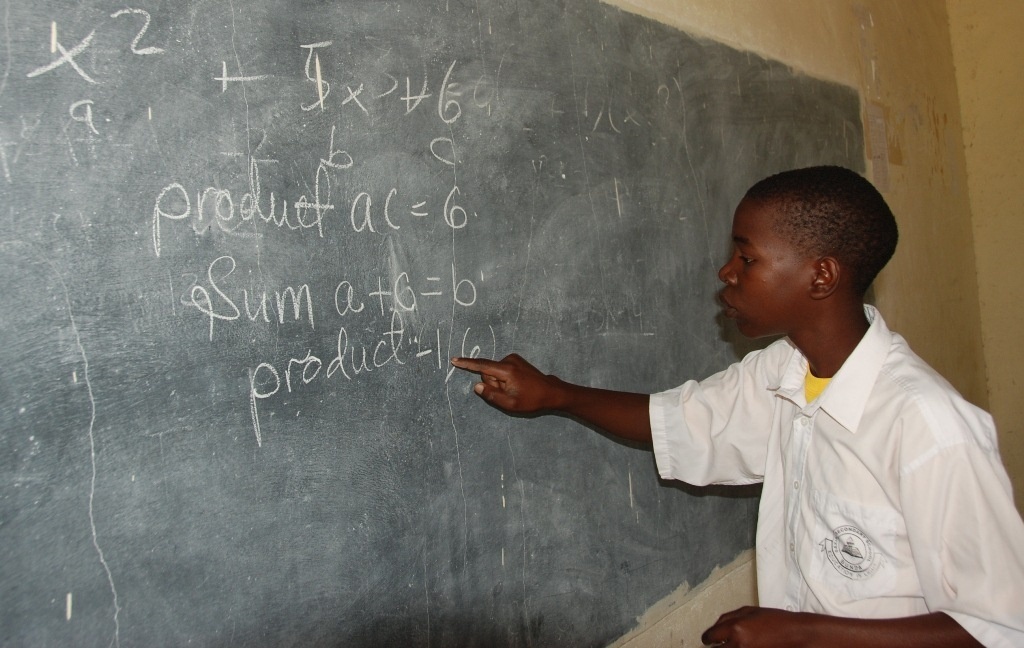 x² + 5x + 6
a. b c
product ac = 6.
Sum a + 6 = b
product - 1, 6)